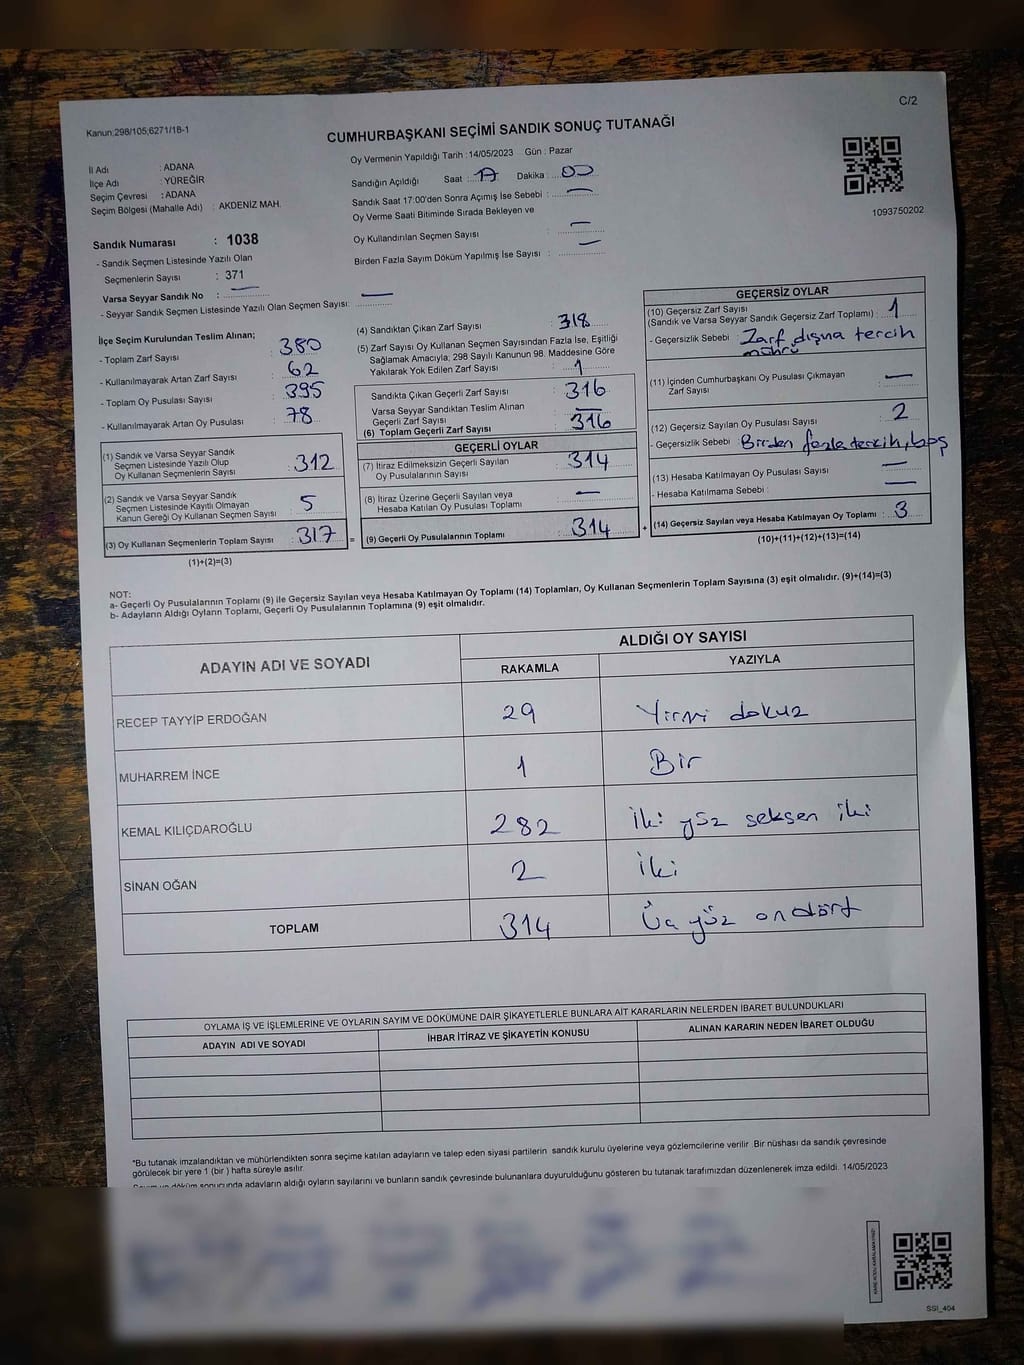 C/2
Kanun:298/105;6271/1B-1
CUMHURBAŞKANI SEÇİMİ SANDIK SONUÇ TUTANAĞI
İl Adı : ADANA
İlçe Adı : YÜREĞİR
Seçim Çevresi : ADANA
Seçim Bölgesi (Mahalle Adı) : AKDENİZ MAH.
Oy Vermenin Yapıldığı Tarih :14/05/2023 Gün : Pazar
Sandığın Açıldığı Saat : 17 Dakika : 00
Sandık Saat 17:00'den Sonra Açımış İse Sebebi : —
Oy Verme Saati Bitiminde Sırada Bekleyen ve
Oy Kullandırılan Seçmen Sayısı : —
Birden Fazla Sayım Döküm Yapılmış İse Sayısı : —
1093750202
Sandık Numarası : 1038
- Sandık Seçmen Listesinde Yazılı Olan
Seçmenlerin Sayısı : 371
Varsa Seyyar Sandık No : —
- Seyyar Sandık Seçmen Listesinde Yazılı Olan Seçmen Sayısı: —
İlçe Seçim Kurulundan Teslim Alınan;
- Toplam Zarf Sayısı : 380
- Kullanılmayarak Artan Zarf Sayısı : 62
- Toplam Oy Pusulası Sayısı : 395
- Kullanılmayarak Artan Oy Pusulası : 78
(1) Sandık ve Varsa Seyyar Sandık
Seçmen Listesinde Yazılı Olup
Oy Kullanan Seçmenlerin Sayısı : 312
(2) Sandık ve Varsa Seyyar Sandık
Seçmen Listesinde Kayıtlı Olmayan
Kanun Gereği Oy Kullanan Seçmen Sayısı : 5
(3) Oy Kullanan Seçmenlerin Toplam Sayısı : 317 =
(1)+(2)=(3)
(4) Sandıktan Çıkan Zarf Sayısı : 318
(5) Zarf Sayısı Oy Kullanan Seçmen Sayısından Fazla İse, Eşitliği
Sağlamak Amacıyla; 298 Sayılı Kanunun 98. Maddesine Göre
Yakılarak Yok Edilen Zarf Sayısı : 1
Sandıkta Çıkan Geçerli Zarf Sayısı : 316
Varsa Seyyar Sandıktan Teslim Alınan
Geçerli Zarf Sayısı : —
(6) Toplam Geçerli Zarf Sayısı : 316
GEÇERLİ OYLAR
(7) İtiraz Edilmeksizin Geçerli Sayılan
Oy Pusulalarının Sayısı : 314
(8) İtiraz Üzerine Geçerli Sayılan veya
Hesaba Katılan Oy Pusulası Toplamı : —
(9) Geçerli Oy Pusulalarının Toplamı : 314 +
GEÇERSİZ OYLAR
(10) Geçersiz Zarf Sayısı
(Sandık ve Varsa Seyyar Sandık Geçersiz Zarf Toplamı) : 1
- Geçersizlik Sebebi : Zarf dışına tercih
mührü
(11) İçinden Cumhurbaşkanı Oy Pusulası Çıkmayan
Zarf Sayısı : —
(12) Geçersiz Sayılan Oy Pusulası Sayısı : 2
- Geçersizlik Sebebi : Birden fazla tercih, boş
(13) Hesaba Katılmayan Oy Pusulası Sayısı : —
- Hesaba Katılmama Sebebi : —
(14) Geçersiz Sayılan veya Hesaba Katılmayan Oy Toplamı : 3
(10)+(11)+(12)+(13)=(14)
NOT:
a- Geçerli Oy Pusulalarının Toplamı (9) ile Geçersiz Sayılan veya Hesaba Katılmayan Oy Toplamı (14) Toplamları, Oy Kullanan Seçmenlerin Toplam Sayısına (3) eşit olmalıdır. (9)+(14)=(3)
b- Adayların Aldığı Oyların Toplamı, Geçerli Oy Pusulalarının Toplamına (9) eşit olmalıdır.
ADAYIN ADI VE SOYADI
ALDIĞI OY SAYISI
RAKAMLA YAZIYLA
RECEP TAYYİP ERDOĞAN 29 Yirmi dokuz
MUHARREM İNCE 1 Bir
KEMAL KILIÇDAROĞLU 282 İki yüz seksen iki
SİNAN OĞAN 2 İki
TOPLAM 314 Üç yüz ondört
OYLAMA İŞ VE İŞLEMLERİNE VE OYLARIN SAYIM VE DÖKÜMÜNE DAİR ŞİKAYETLERLE BUNLARA AİT KARARLARIN NELERDEN İBARET BULUNDUKLARI
ADAYIN ADI VE SOYADI İHBAR İTİRAZ VE ŞİKAYETİN KONUSU ALINAN KARARIN NEDEN İBARET OLDUĞU
*Bu tutanak imzalandıktan ve mühürlendikten sonra seçime katılan adayların ve talep eden siyasi partilerin sandık kurulu üyelerine veya gözlemcilerine verilir .Bir nüshası da sandık çevresinde
görülecek bir yere 1 (bir ) hafta süreyle asılır.
Sayım ve döküm sonucunda adayların aldığı oyların sayılarını ve bunların sandık çevresinde bulunanlara duyurulduğunu gösteren bu tutanak tarafımızdan düzenlenerek imza edildi. 14/05/2023
SSI_404